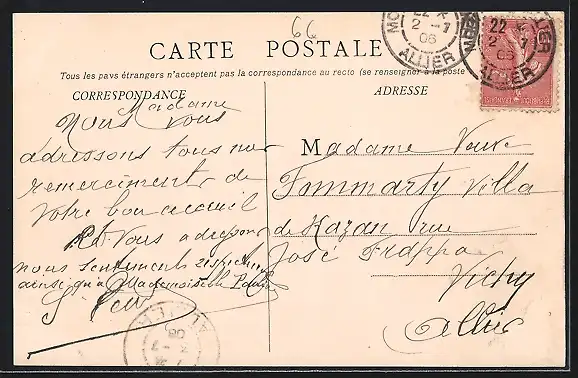 66
CARTE POSTALE
Tous les pays étrangers n'acceptent pas la correspondance au recto (se renseigner à la poste
CORRESPONDANCE
ADRESSE
Madame
Nous vous
adressons tous nos
remerciments de
votre bon accueil
Et vous adressons
nous sentiments respectueux
ainsi qu'à Mademoiselle
Madame Veuve
Fommarty Villa
de Kazan rue
José Frappa
Vichy
Allier
22
2 - 1
06
ALLIER
22
2 - 1
06
ALLIER